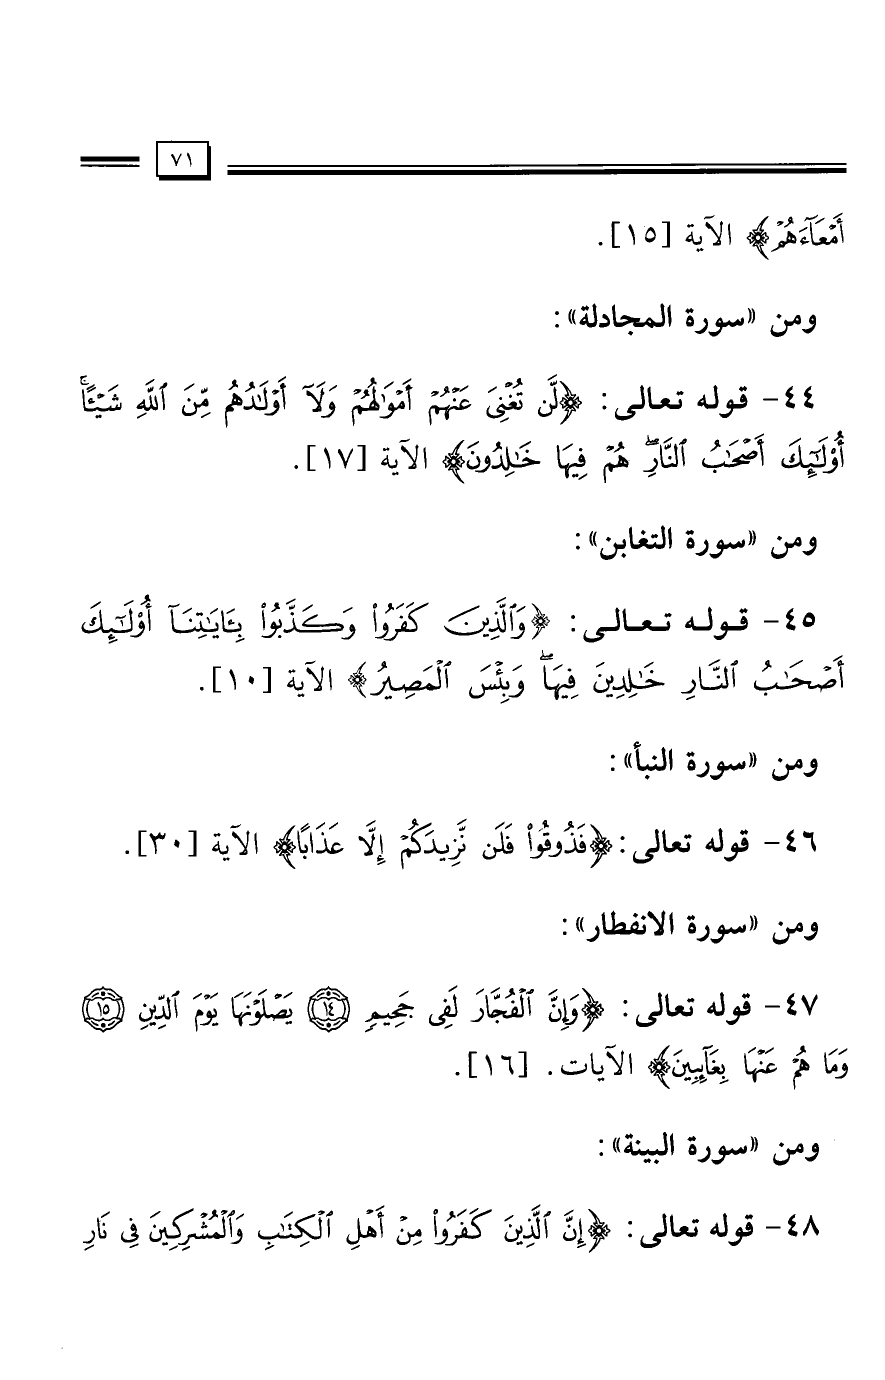 ٧١
أَمْعَآءَهُمْ﴾ الآية [١٥].
ومن «سورة المجادلة»:
٤٤- قوله تعالى: ﴿لَّن تُغْنِىَ عَنْهُمْ أَمْوَٰلُهُمْ وَلَآ أَوْلَٰدُهُم مِّنَ ٱللَّهِ شَيْـًٔا ۚ
أُو۟لَٰٓئِكَ أَصْحَٰبُ ٱلنَّارِ ۖ هُمْ فِيهَا خَٰلِدُونَ﴾ الآية [١٧].
ومن «سورة التغابن»:
٤٥- قوله تعالى: ﴿وَٱلَّذِينَ كَفَرُوا۟ وَكَذَّبُوا۟ بِـَٔايَٰتِنَآ أُو۟لَٰٓئِكَ
أَصْحَٰبُ ٱلنَّارِ خَٰلِدِينَ فِيهَا ۖ وَبِئْسَ ٱلْمَصِيرُ﴾ الآية [١٠].
ومن «سورة النبأ»:
٤٦- قوله تعالى: ﴿فَذُوقُوا۟ فَلَن نَّزِيدَكُمْ إِلَّا عَذَابًا﴾ الآية [٣٠].
ومن «سورة الانفطار»:
٤٧- قوله تعالى: ﴿وَإِنَّ ٱلْفُجَّارَ لَفِى جَحِيمٍ ١٤ يَصْلَوْنَهَا يَوْمَ ٱلدِّينِ ١٥
وَمَا هُمْ عَنْهَا بِغَآئِبِينَ﴾ الآيات. [١٦].
ومن «سورة البينة»:
٤٨- قوله تعالى: ﴿إِنَّ ٱلَّذِينَ كَفَرُوا۟ مِنْ أَهْلِ ٱلْكِتَٰبِ وَٱلْمُشْرِكِينَ فِى نَارِ